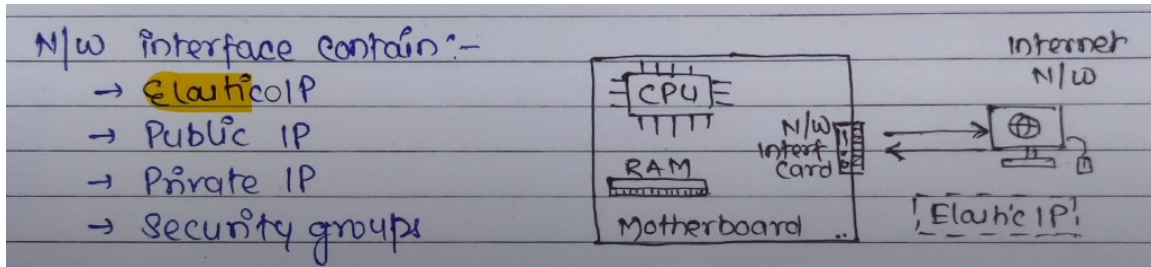 N/W interface contain :-
→ ElasticoIP
→ Public IP
→ Private IP
→ Security groups
CPU
RAM
Motherboard
N/W
interf
card
Internet
N/W
Elastic IP